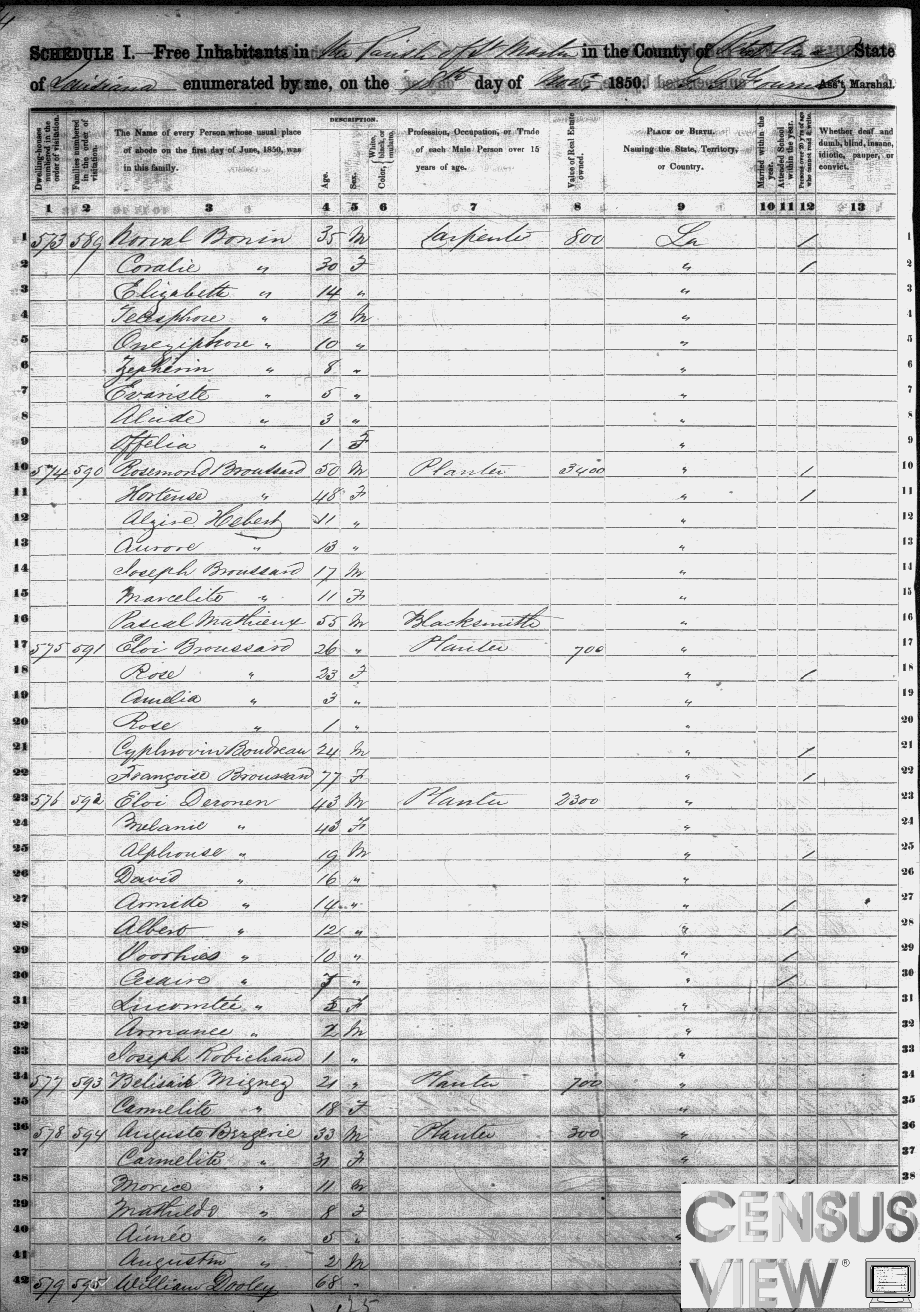 SCHEDULE I.—Free Inhabitants in the Parish of St Martin in the County of State
of Louisiana enumerated by me, on the day of 1850. Ass't Marshal.
Dwelling-houses numbered in the order of visitation.
Families numbered in the order of visitation.
The Name of every Person whose usual place of abode on the first day of June, 1850, was in this family.
DESCRIPTION.
Age.
Sex.
Color, White, black, or mulatto.
Profession, Occupation, or Trade of each Male Person over 15 years of age.
Value of Real Estate owned.
PLACE OF BIRTH. Naming the State, Territory, or Country.
Married within the year.
Attended School within the year.
Persons over 20 y'rs of age who cannot read & write.
Whether deaf and dumb, blind, insane, idiotic, pauper, or convict.
1 2 3 4 5 6 7 8 9 10 11 12 13
1 573 589 Norval Bonin 35 M Carpenter 800 La / 1
2 Coralie " 30 F " / 2
3 Elizabeth " 14 " " 3
4 Telesphore " 12 M " 4
5 Oneziphore " 10 " " 5
6 Zepherin " 8 " " 6
7 Evariste " 5 " " 7
8 Alcide " 3 " " 8
9 Offelia " 1 F " 9
10 574 590 Rosemond Broussard 50 M Planter 3400 " / 10
11 Hortense " 48 F " / 11
12 Alzire Hebert 11 " " 12
13 Aurore " 13 " " 13
14 Joseph Broussard 17 M " 14
15 Marcelite " 11 F " 15
16 Pascal Mathieux 55 M Blacksmith " 16
17 575 591 Eloi Broussard 26 " Planter 700 " 17
18 Rose " 23 F " / 18
19 Amelia " 3 " " 19
20 Rose " 1 " " 20
21 Boudreau 24 M " / 21
22 Françoise Broussard 77 F " / 22
23 576 592 Eloi Deronen 43 M Planter 2300 " 23
24 Melanie " 43 F " 24
25 Alphonse " 19 M " / 25
26 David " 16 " " 26
27 " 14 " " / 27
28 Albert " 12 " " / 28
29 Voorhies " 10 " " / 29
30 Cesaire " 7 " " / 30
31 " F " 31
32 Armance " 2 M " 32
33 Joseph Robichaud 1 " " 33
34 577 593 Belisaire Miguez 21 " Planter 700 " 34
35 Carmelite " 18 F " 35
36 578 594 Auguste Bergerie 33 M Planter 300 " 36
37 Carmelite " 31 F " 37
38 Morice " 11 M 38
39 Mathilde " 8 F
40 Aimée " 5 "
41 Augustin " 2 M
42 579 595 William Dooley 68 "
CENSUS
VIEW ®